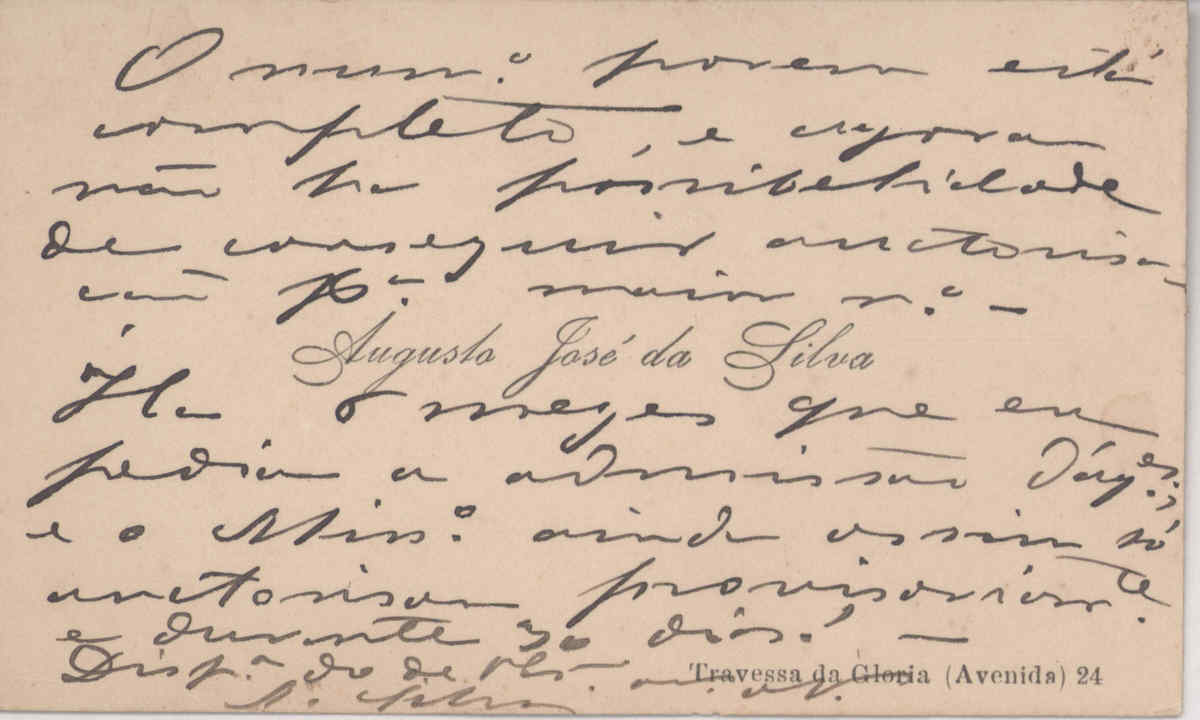 O num.º porem está
completo, e agora
não ha possibelidade
de conseguir auctorisa-
cão p.ª maior n.º —
Augusto José da Silva
Ha 6 mezes que eu
pedia a admissão
e o Min.º ainda assim só
auctorisou provisoriam.te
e durante 30 dias! —
Disp.ª do de V.
A. Silva
Travessa da Gloria (Avenida) 24